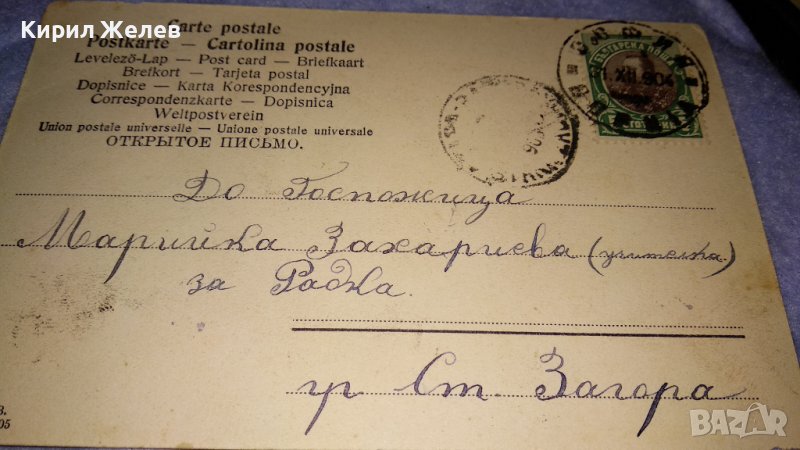 Кирил Желев
Carte postale
Postkarte — Cartolina postale
Levelező-Lap — Post card — Briefkaart
Brefkort — Tarjeta postal
Dopisnice — Karta Korespondencyjna
Correspondenzkarte — Dopisnica
Weltpostverein
Union postale universelle — Unione postale universale
ОТКРЫТОЕ ПИСЬМО.
До Госпожица
Марийка Захариева (учителка)
за Радка.
гр Ст. Загора
XII.904
05
BAZAR